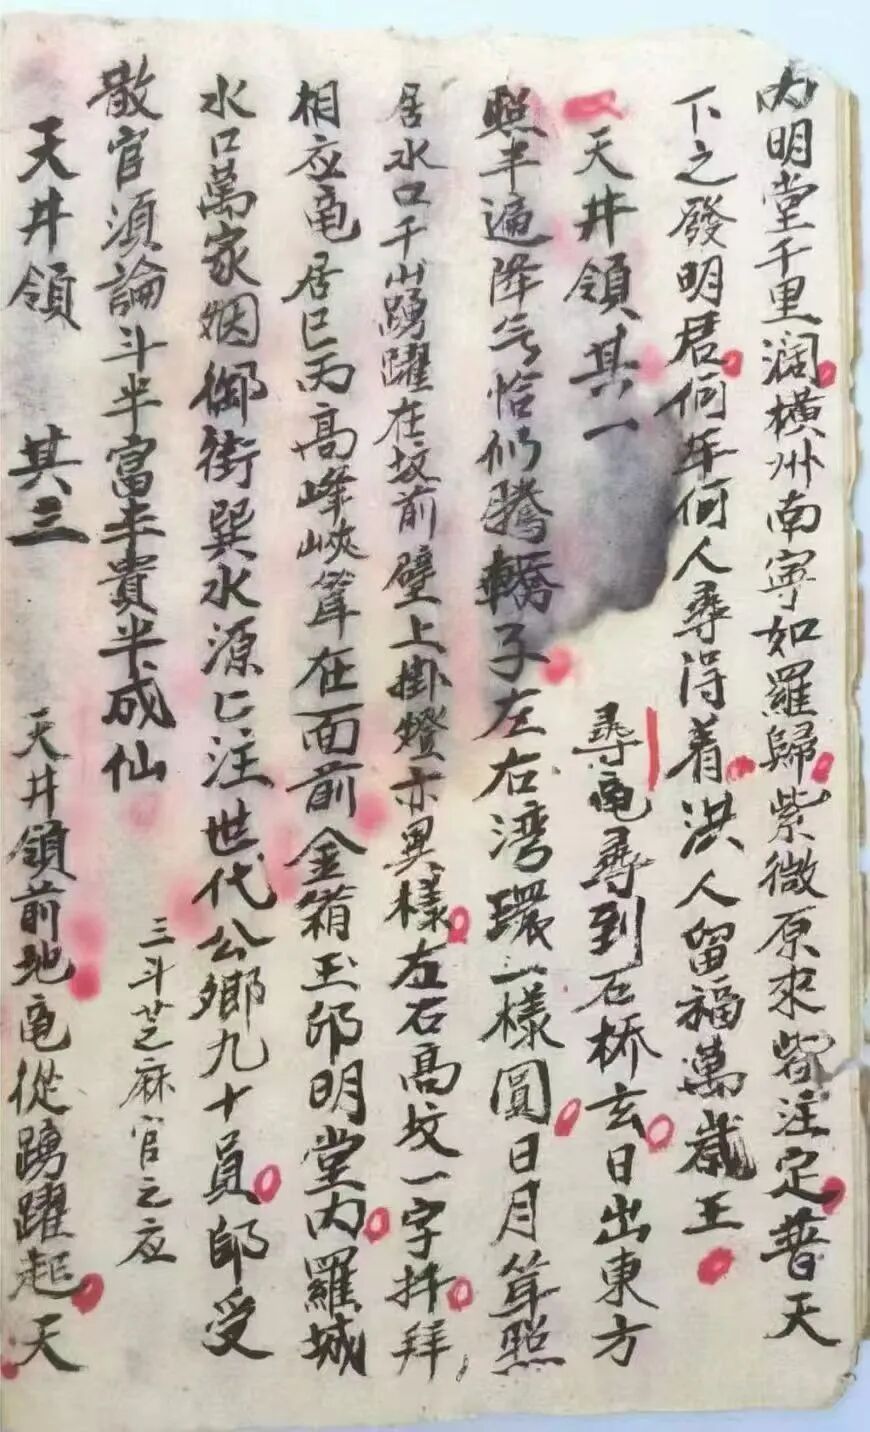 内明堂千里濶橫州南寧如羅歸紫微原來注定普天
下之發明君何年何人尋得着洪人留福萬歲王
一天井領其一 尋黾尋到石桥玄日出東方
照半邊降气恰似騰轎子左右湾環一樣圓日月耸照
居水口千山踴躍在坟前壁上掛燈亦異樣左右高坟一字拝拜
相应黾居巳丙高峰峽耸在面前金箱玉印明堂内羅城
水口萬家烟御街巽水源已注世代公鄉九十員師受
散官須論斗半富半貴半成仙 三斗芝麻官之应
天井領 其三 天井領前地黾從踴躍起天